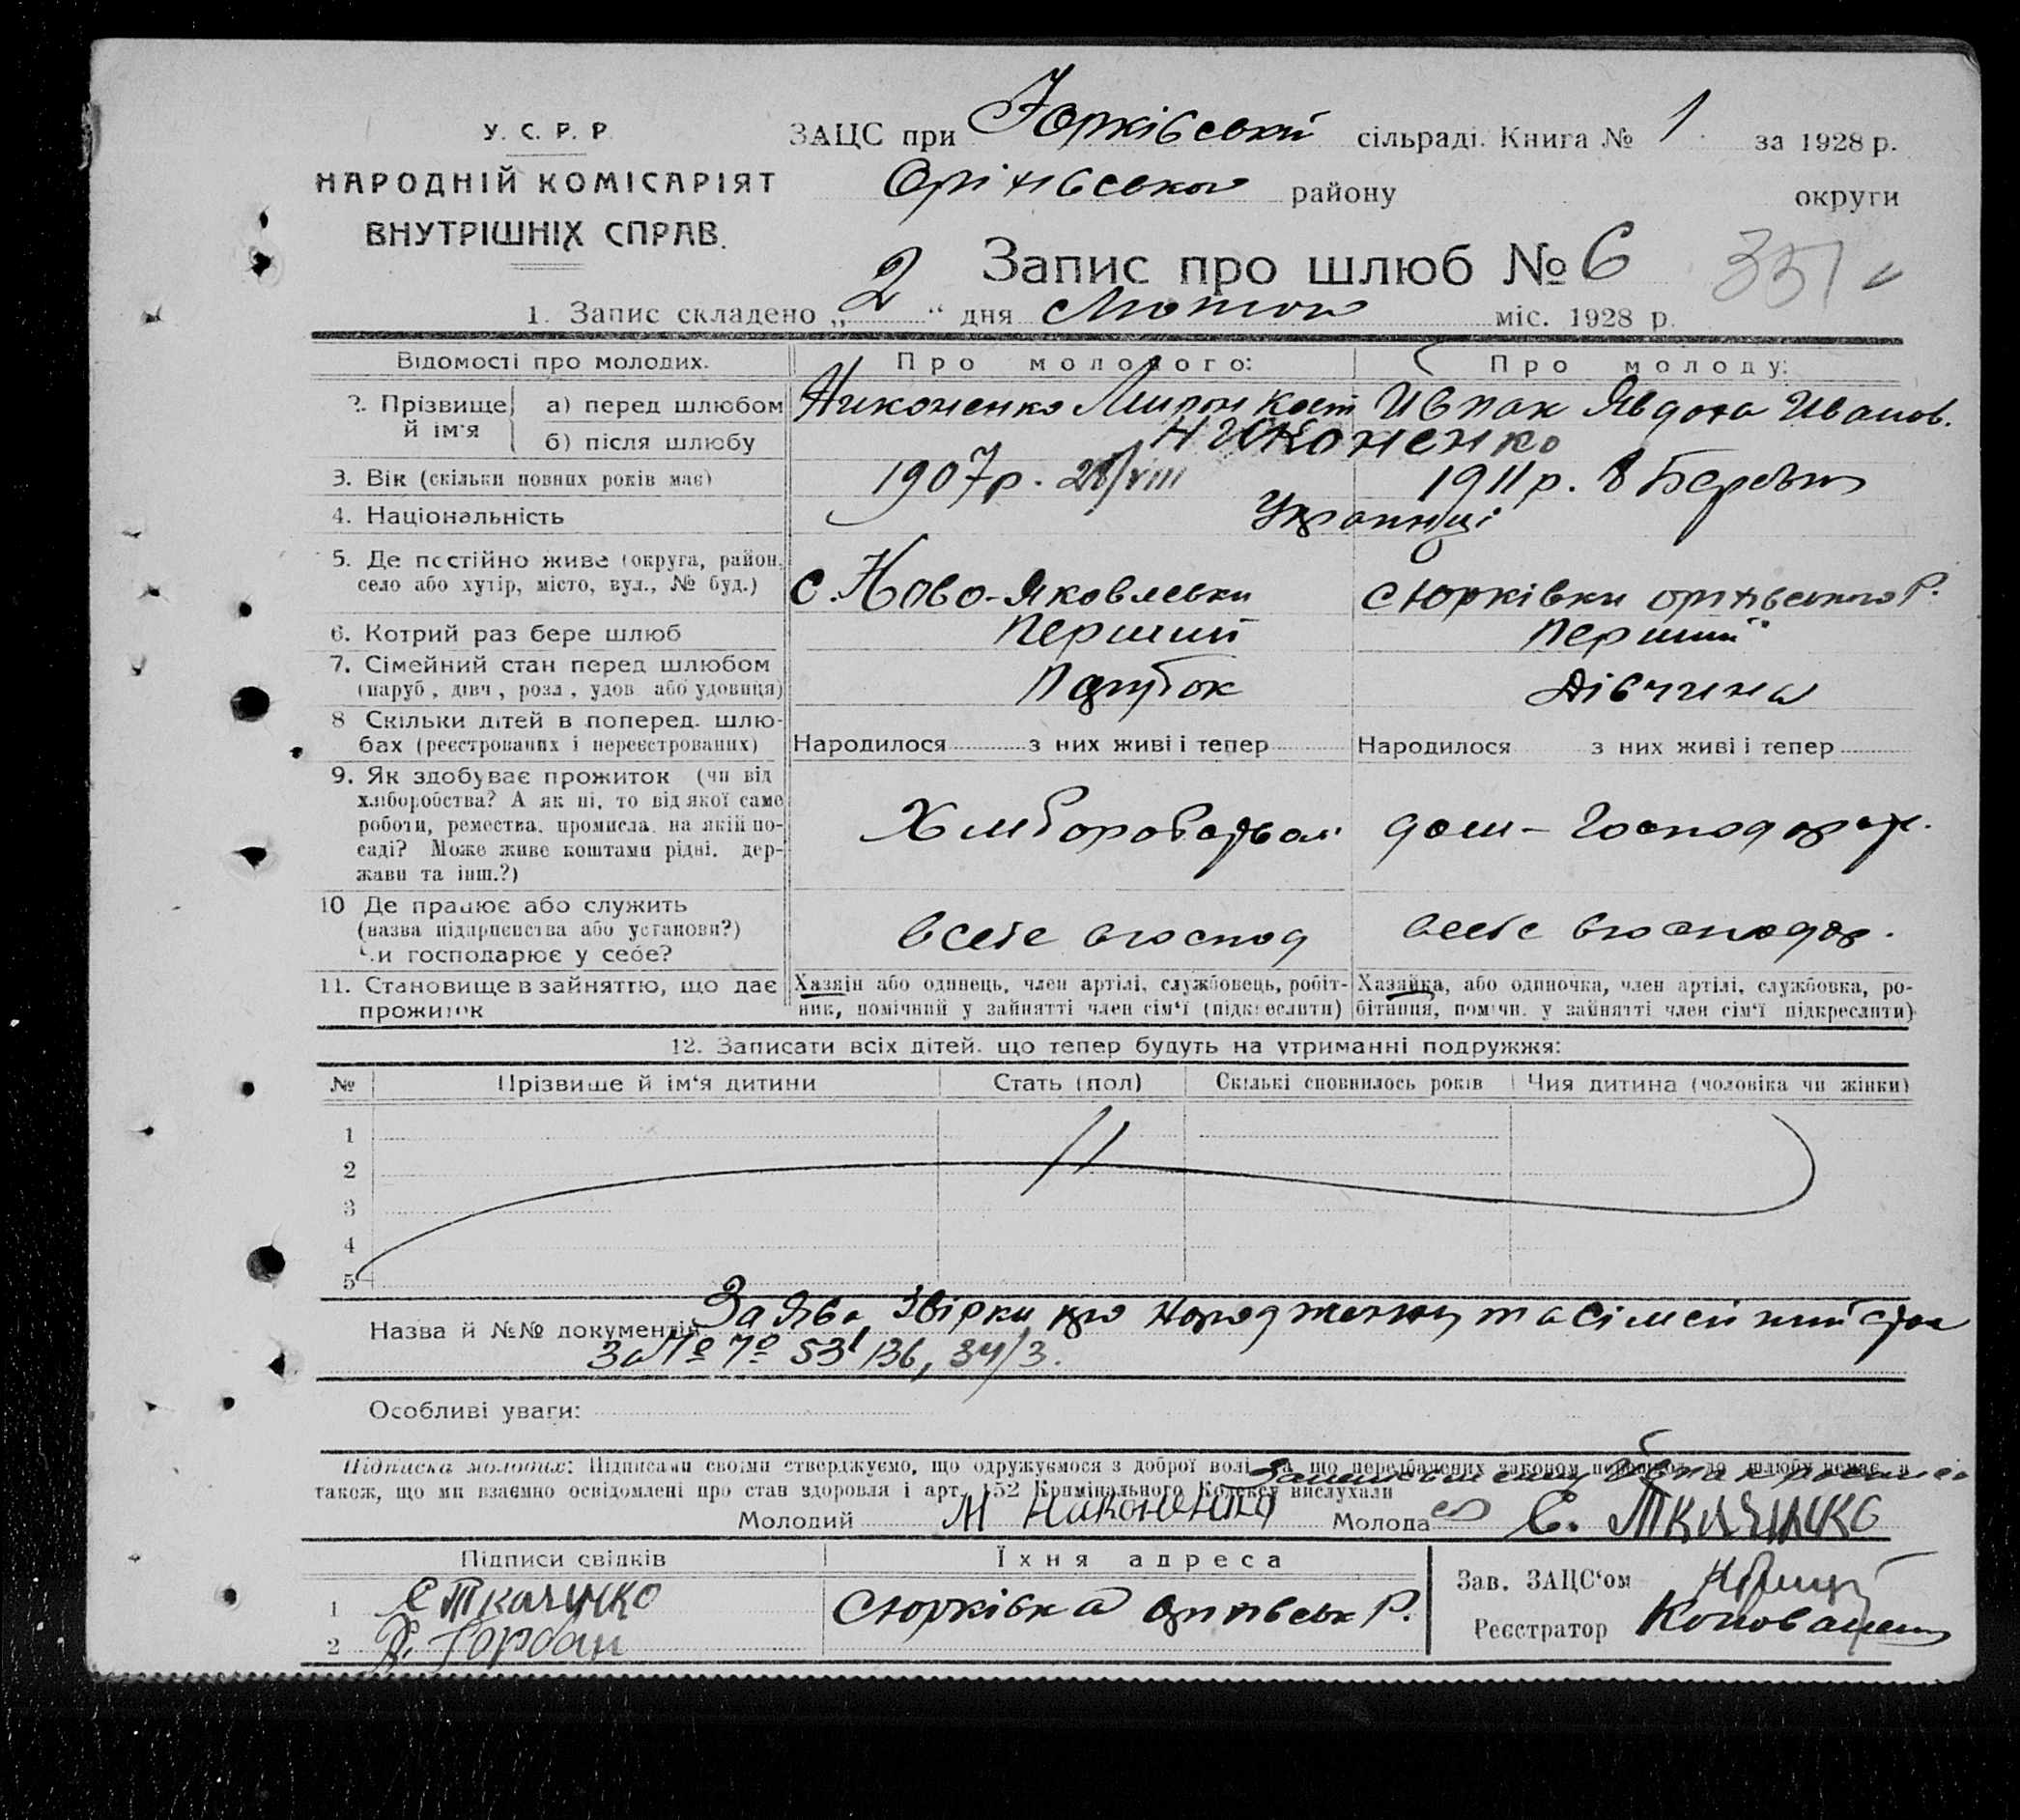 У. С. Р. Р.
НАРОДНІЙ КОМІСАРІЯТ
ВНУТРІШНІХ СПРАВ.
ЗАЦС при Юрківській сільраді. Книга № 1. за 1928 р.
Оріхівського району округи
Запис про шлюб № 6
351
1. Запис складено „2“ дня Лютого міс. 1928 р.
Відомості про молодих. Про молодого: Про молоду:
2. Прізвище й ім'я
а) перед шлюбом Никоненко Мирон Кост Ивпак Явдоха Иванов.
б) після шлюбу Никоненко
3. Вік (скільки повних років має) 1907р. 28/VIII 1911 р. 8 Березня
4. Національність Українці
5. Де постійно живе (округа, район, село або хутір, місто, вул., № буд.) с. Ново-Яковлевки с Юрківки оріхівського Р.
6. Котрий раз бере шлюб Перший Перший
7. Сімейний стан перед шлюбом (паруб., дівч., розл., удов. або удовиця) Парубок Дівчина
8 Скільки дітей в поперед. шлюбах (реєстрованих і нереєстрованих) Народилося з них живі і тепер Народилося з них живі і тепер
9. Як здобуває прожиток (чи від
хліборобства? А як ні, то від якої саме
роботи, ремества, промисла, на якій по-
саді? Може живе коштами рідні, дер-
жави та інш.?)
Хліборобством дом-господар.
10 Де працює або служить
(назва підприємства або установи?)
Чи господарює у себе?
в себе в господ в себе в господар.
11. Становище в зайняттю, що дає прожиток
Хазяїн або одинець, член артілі, службовець, робіт-
ник, помічний у зайнятті член сім'ї (підкреслити)
Хазяйка, або одиночка, член артілі, службовка, ро-
бітниця, помічн. у зайнятті член сім'ї підкреслити)
12. Записати всіх дітей, що тепер будуть на утриманні подружжя:
№ Прізвище й ім'я дитини Стать (пол) Скількі сповнилось років Чия дитина (чоловіка чи жінки)
1
2
3
4
5
Назва й №№ документів Заява, звірки про народження та сімейний стан
За № 70 53/136, 34/3.
Особливі уваги:
Підписка молодих: Підписами своїми стверджуємо, що одружуємося з доброї волі, та що передбачених законом перешкод до шлюбу немає, а
також, що ми взаємно освідомлені про стан здоровля і арт. 152 Кримінального Кодексу вислухали
Молодий М Никоненко Молода Є. Ткаченко
Підписи свідків Їхня адреса
1 Є Ткаченко
2 Горбан
С Юрківка Оріхівськ Р.
Зав. ЗАЦС'ом
Реєстратор Коновален